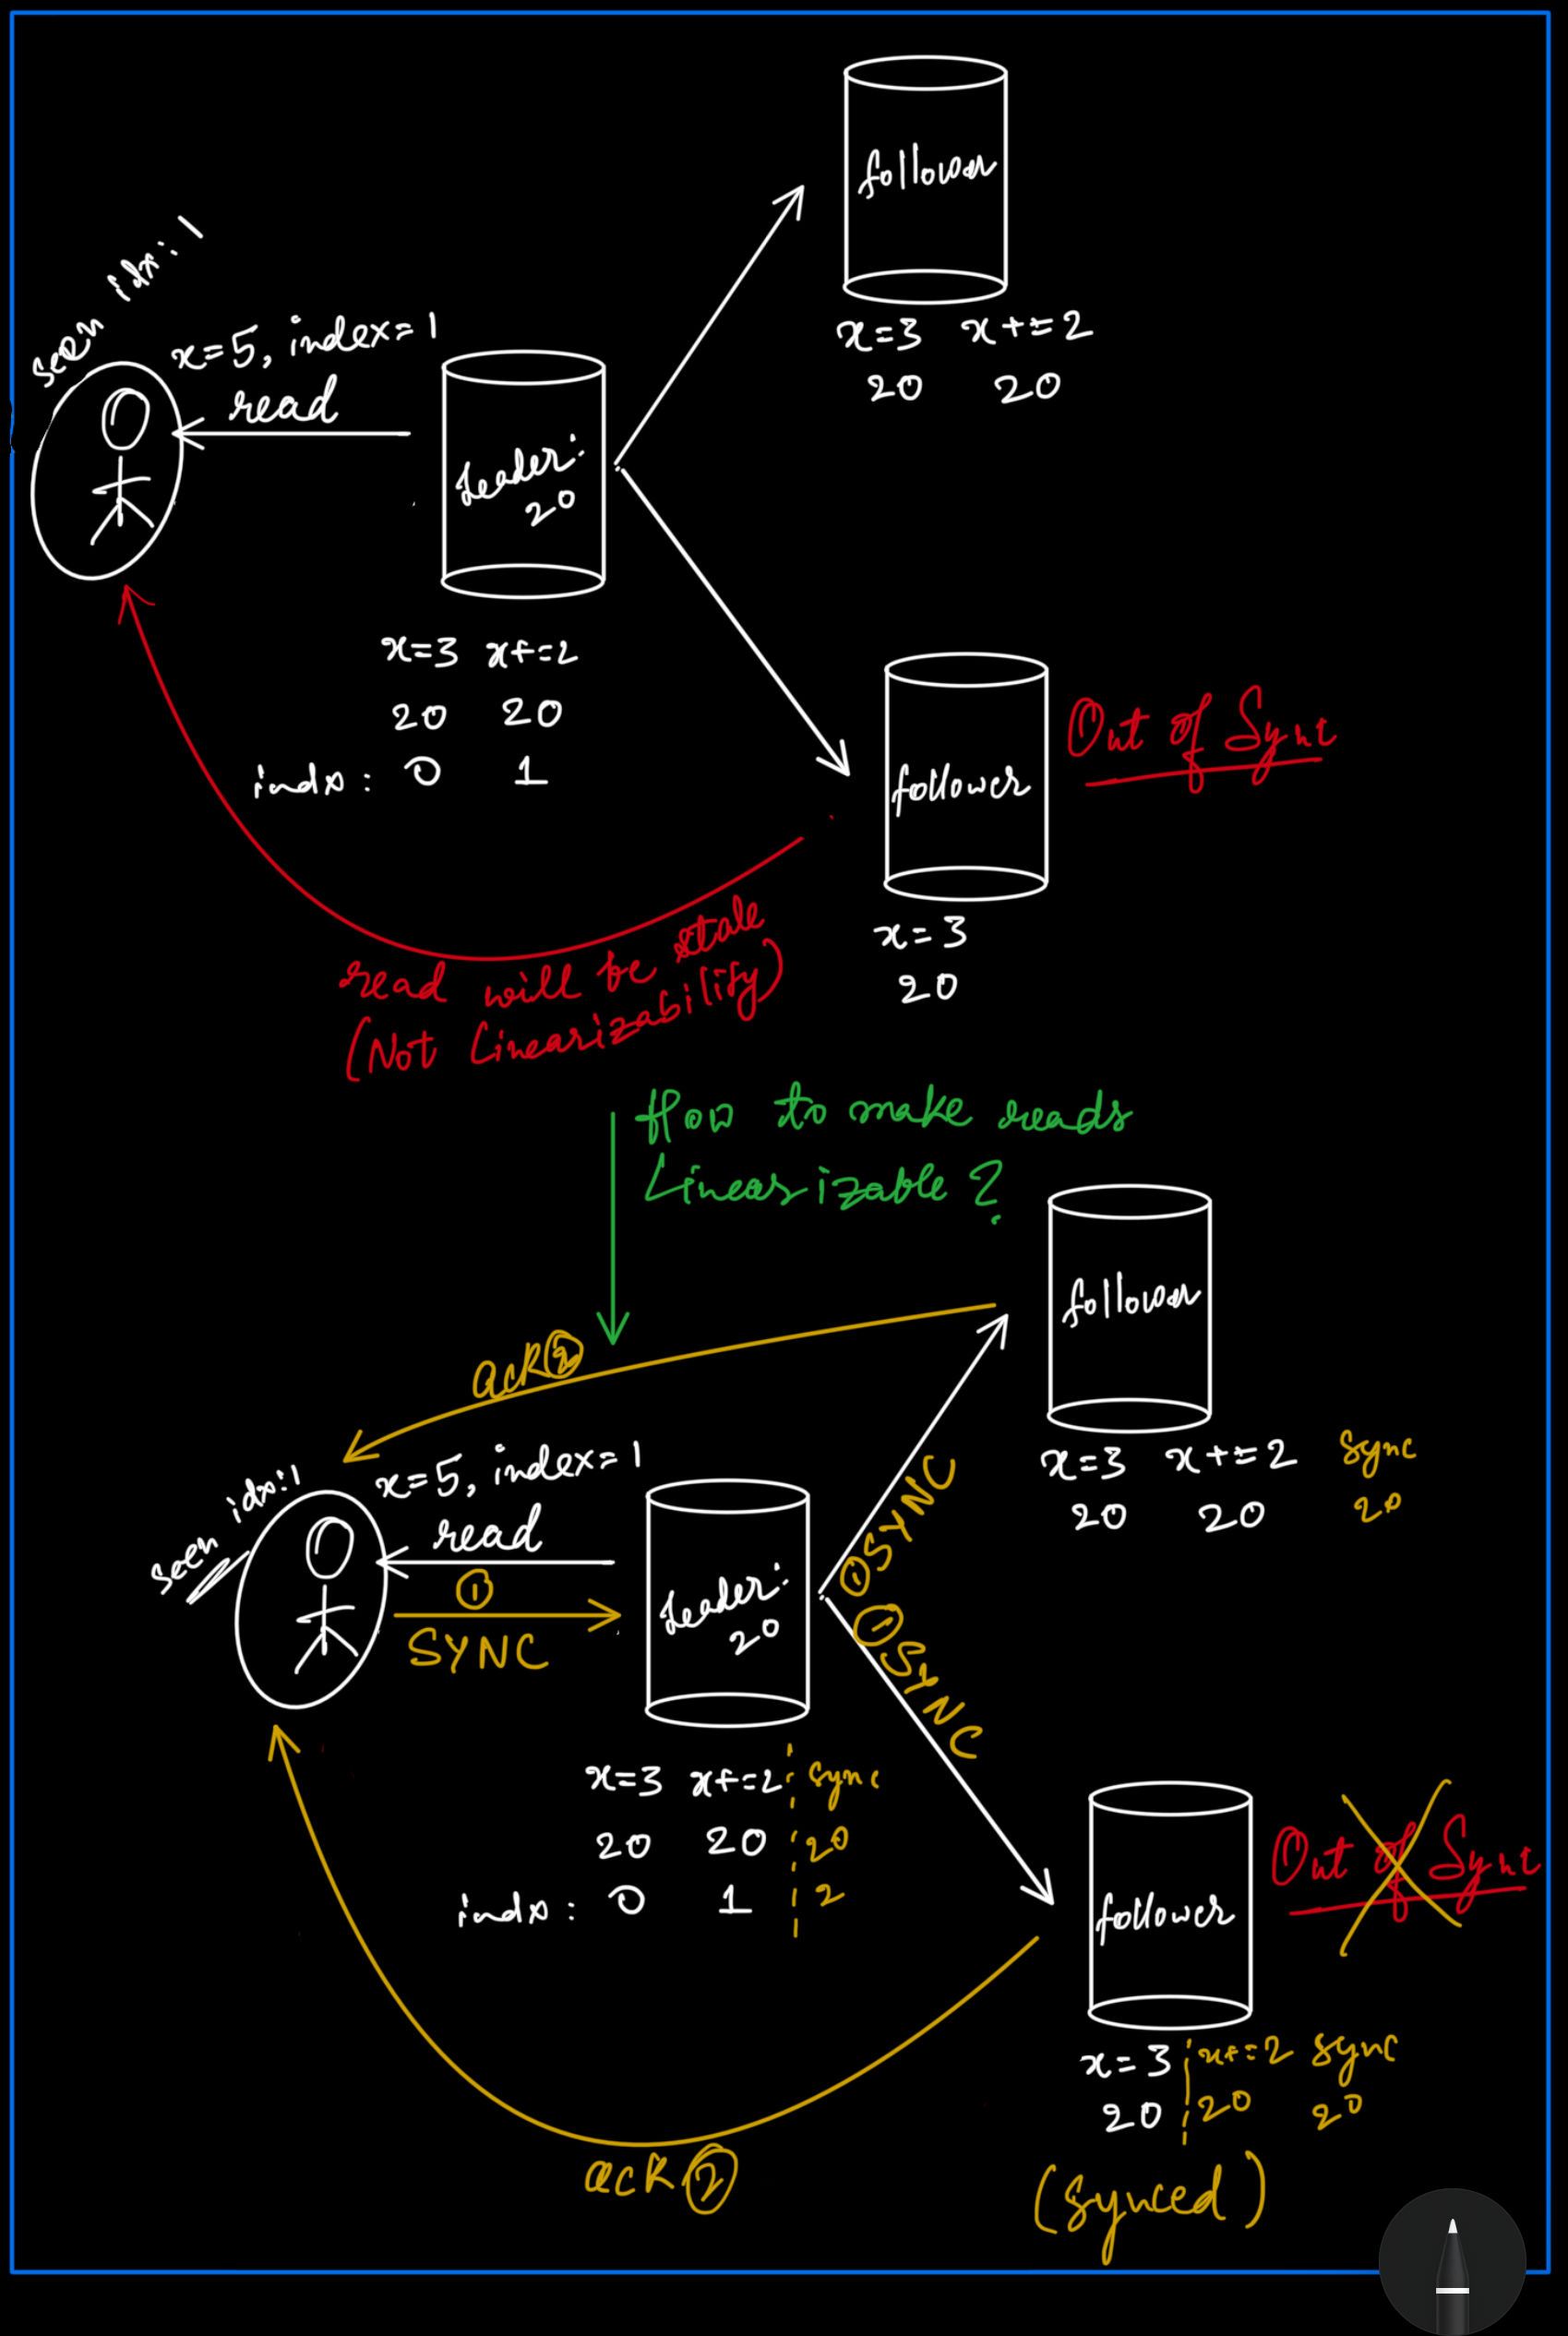 follower
x=3 x+=2
20 20
seen idx: 1
x=5, index=1
read
Leader:
20
x=3 x+=2
20 20
indx: 0 1
follower
Out of Sync
x=3
20
read will be stale
(Not Linearizability)
How to make reads
Linearizable?
follower
x=3 x+=2 sync
20 20 20
ack ②
seen idx:1
x=5, index=1
read
①
SYNC
Leader:
20
① SYNC
① SYNC
x=3 x+=2 sync
20 20 20
indx: 0 1 2
follower
Out of Sync
x=3 x+=2 sync
20 20 20
ack ②
(synced)